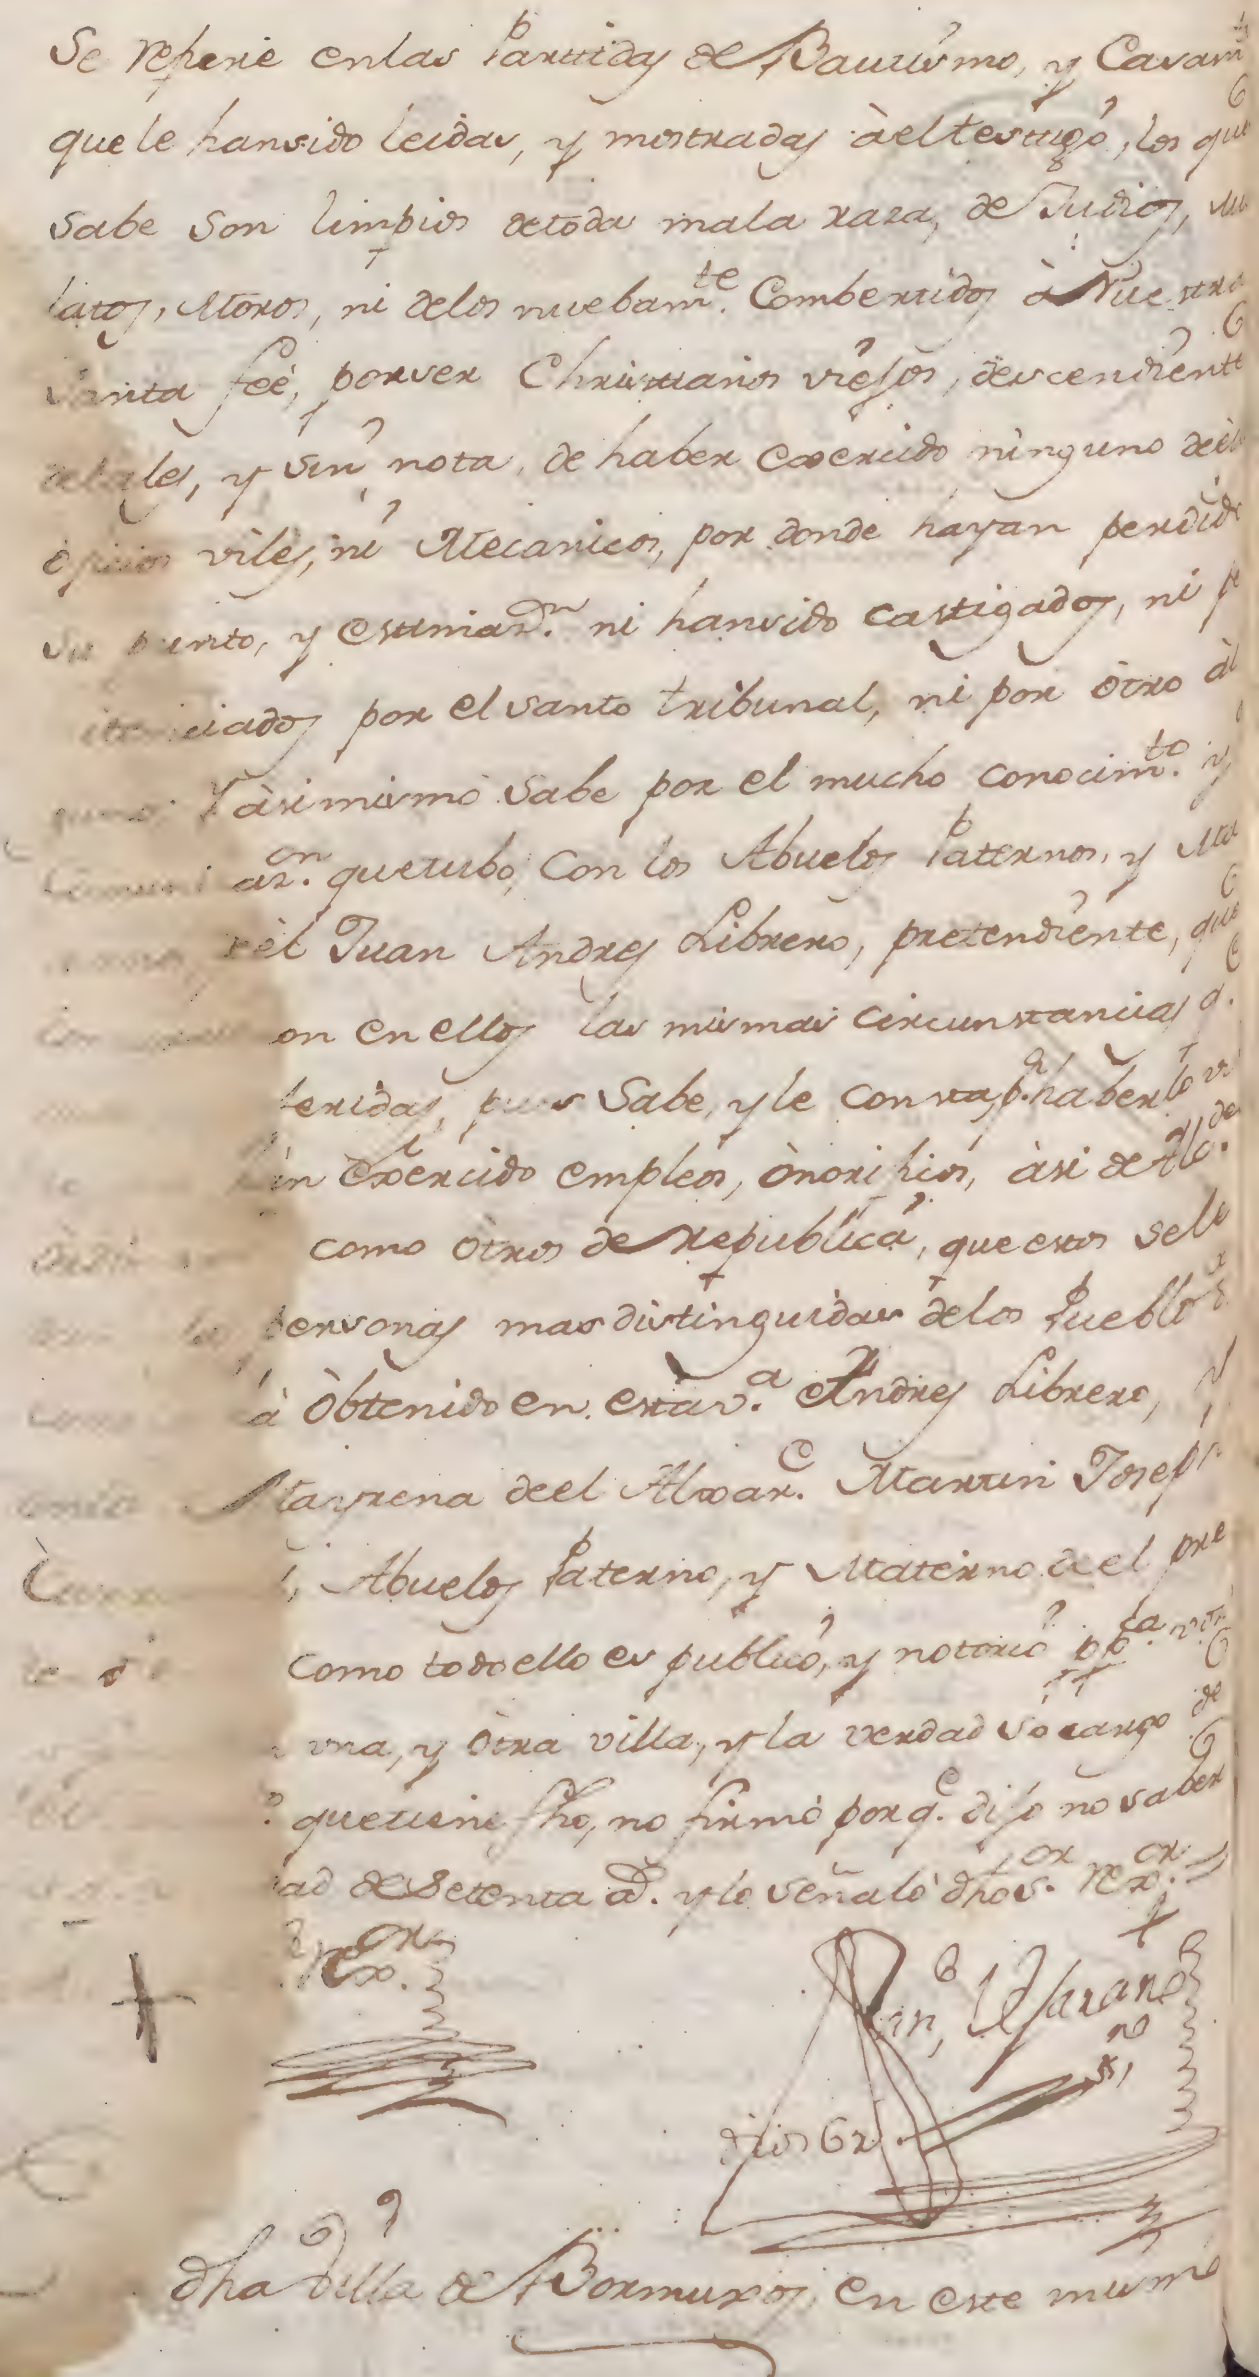 Se refierie enlas Partidas de Bautismo, y Casam.
que le hansido leidas, y mostradas à el testigo, los que
sabe son limpios detoda mala raza, de Judios, Mu
latos, Moros, ni delos nuebam.te Combertidos à Nuestra
Santa feè, porser Christianos viejos, descendiente
detales, y sin nota, de haber exercido ninguno deèl
oficios viles, ni Mecanicos, por donde hayan perdido
su punto, y estimaz.on ni hansido castigados, ni pe
itenciados por el santo tribunal, ni por òtro àl
guno. Y àsimismo sabe por el mucho conocim.to y
az.on quetubo, Con los Abuelos Paternos, y Ma
èl Juan Andres Librero, pretendiente, que
on en ellos las mismas circunstancias q.
feridas, pues Sabe, y le consta, p.r haberlo vi
exercido empleos, ònorificos, àsi de Alc.de
como òtros de republica, que estos sele
personas mas distinguidas delos Pueblos
à òbtenido en esta v.a Andres Librero, y
Mayrena deel Alxar.e Martin Joseph
Abuelos Paterno, y Materno de el pre
como todo ello es publico, y notorio pp.ca
una, y òtra villa, y la verdad sò cargo de
quetiene fho, no firmò porq.e dijo no saber
ad de Setenta a.s y lo señalò dho s.or Rex.or
Rex.or
dros 6 r.
dha Villa de Bormujos, en este mismo